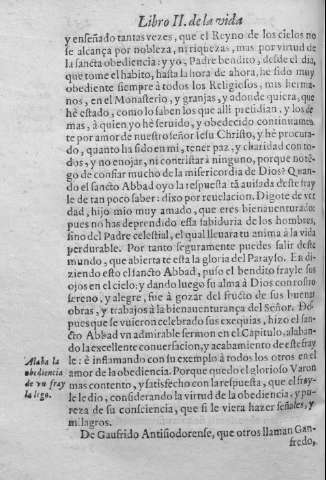 Libro II. de la vida
y enseñado tantas vezes, que el Reyno de los cielos no
se alcança por nobleza, ni riquezas, mas por virtud de
la sancta obediencia: y yo, Padre bendito, desde el dia,
que tome el habito, hasta la hora de ahora, he sido muy
obediente siempre à todos los Religiosos, mis herma-
nos, en el Monasterio, y granjas, y donde quiera, que
hè estado, como lo saben los que alli presidian, y los de-
mas, à quien yo hè seruido, y obedecido continuamẽ
te por amor de nuestro señor Iesu Christo, y hè procura-
do, quanto ha sido en mi, tener paz, y charidad con to-
dos, y no enojar, ni contristar à ninguno, porque no tẽ-
go de confiar mucho de la misericordia de Dios? Quan-
do el sancto Abbad oyo la respuesta tã auisada deste fray
le de tan poco saber: dixo por reuelacion. Digote de ver
dad, hijo mio muy amado, que eres bienauenturado:
pues no has deprendido esta sabiduria de los hombres,
sino del Padre celestial, el qual lleuara tu anima à la vida
perdurable. Por tanto seguramente puedes salir deste
mundo, que abierta te esta la gloria del Parayso. En di-
ziendo esto el sancto Abbad, puso el bendito frayle sus
ojos en el cielo: y dando luego su alma à Dios con rostro
sereno, y alegre, fue à gozar del fructo de sus buenas
obras, y trabajos à la bienauenturança del Señor. Des
pues que se vuieron celebrado sus exequias, hizo el san-
cto Abbad vn admirable sermon en el Capitulo, alaban-
do la excellente conuersacion, y acabamiento deste fray
le: è inflamando con su exemplo à todos los otros en el
amor de la obediencia. Porque quedo el glorioso Varon
mas contento, y satisfecho con la respuesta, que el fray-
le le dio, considerando la virtud de la obediencia, y pu-
reza de su consciencia, que si le viera hazer señales, y
milagros.
Alaba la
obediencia
de vn fray
le lego.
De Gaufrido Antisiodorense, que otros llaman Gau-
fredo,